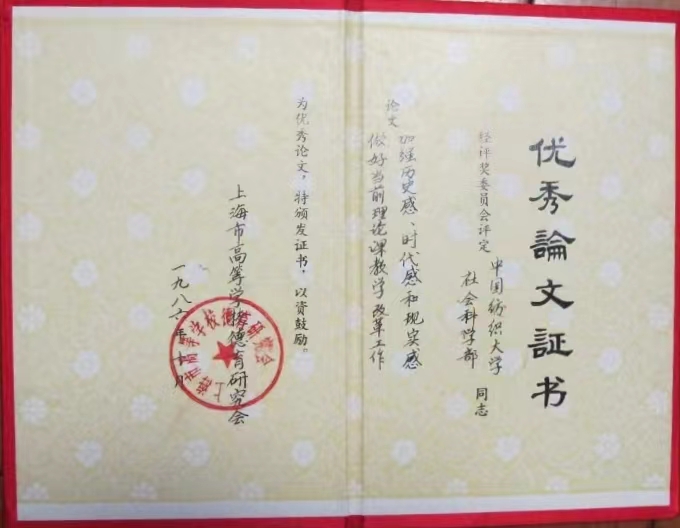 优秀論文证书
经评奖委员会评定 中国纺织大学
社会科学部 同志
论文 加强历史感、时代感和现实感
做好当前理论课教学改革工作
为优秀论文，特颁发证书，以资鼓励。
上海市高等学校德育研究会
一九八六年十
上海市高等学校德育研究会